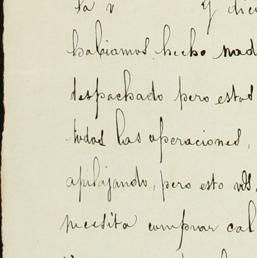 habiamos hecho nad
despachado pero estas
todas las operaciones,
pero esto nos
necesita comprar cal